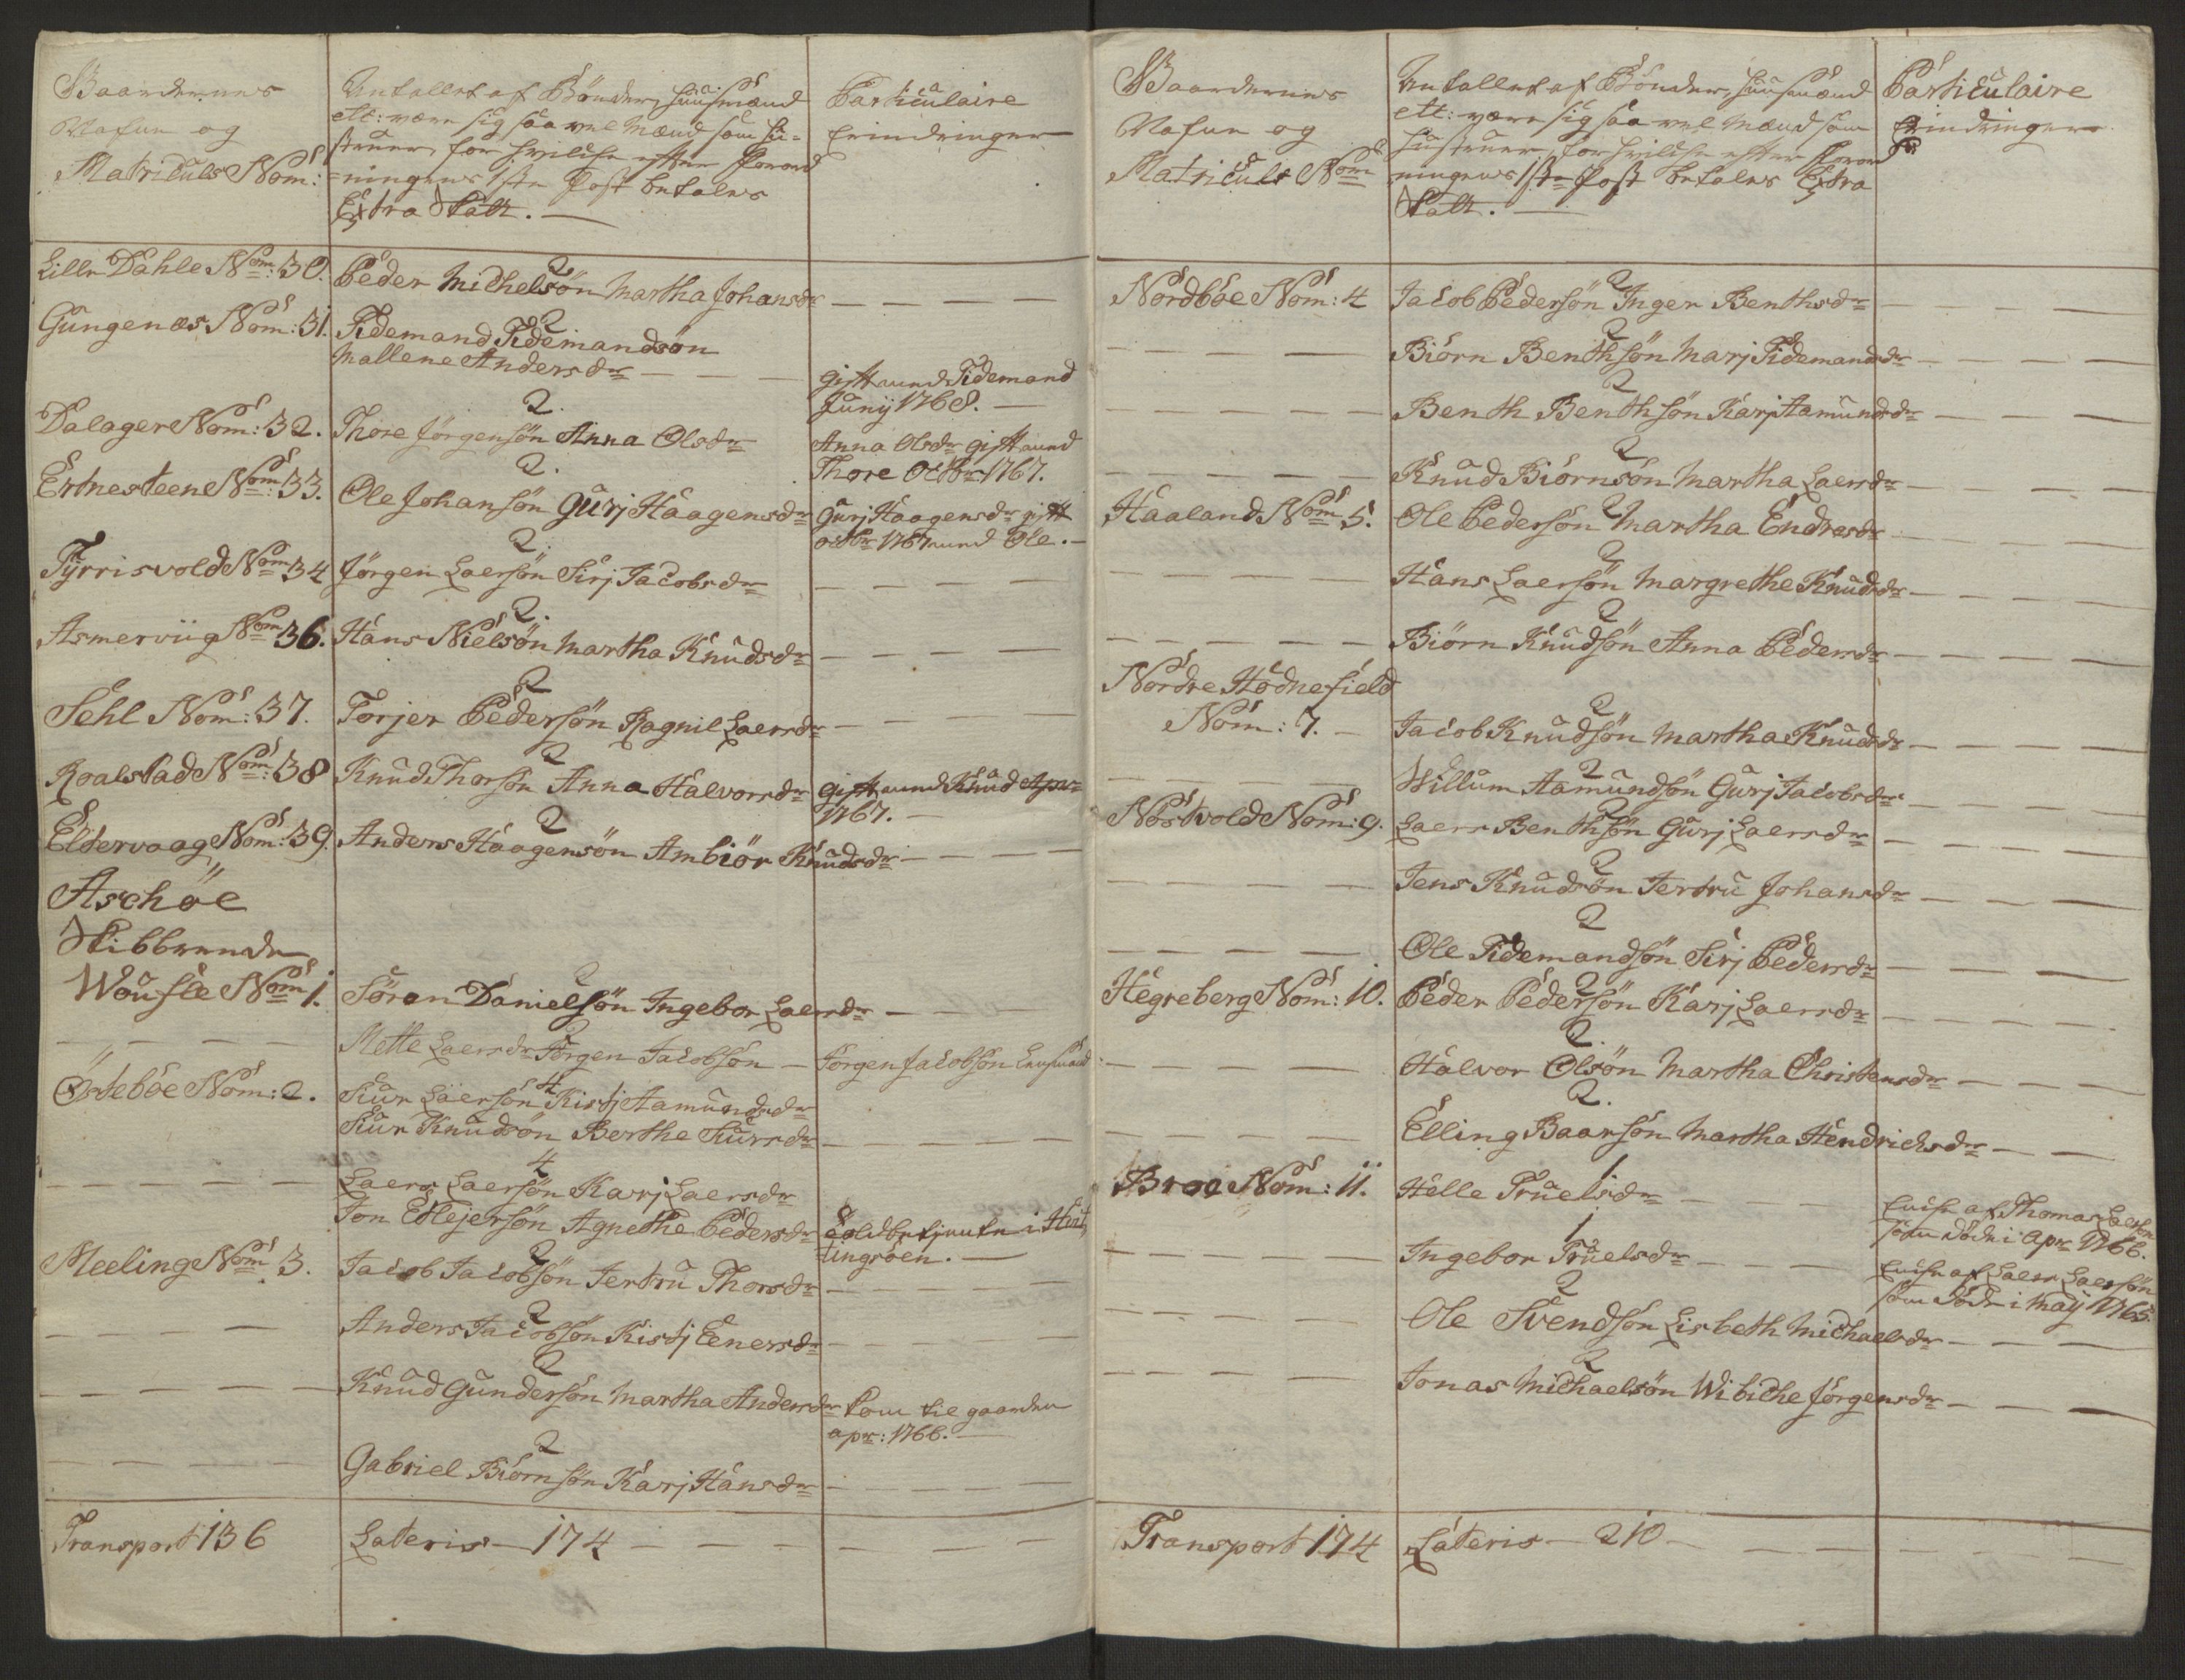 Gaardernes
Nafne og
Matriculs Nom:
Antallet af Bönder, Huusmænd
ett: være sig saa vel Mænd som Hu-
struer, for hvilche efter Forord
=ningens 1ste Post betales
Extra Skatt.
Particulaire
Erindringer
Lille Dahle Nom: 30.
2
Peder Michelsön Martha Johansdr
Gungenæs Nom: 31.
2
Tidemand Tidemandsön
Mallene Andersdr
gift med Tidemand
Junÿ 1768.
Dalager Nom: 32.
2.
Thore Jörgensön Anna Olsdr
Anna Olsdr gift med
Thore Octbr 1767.
Ertnesteene Nom: 33.
2.
Ole Johansön Gurj Haagensdr
Gurj Haagensdr gift
octbr 1767 med Ole.
Tÿrrisvold Nom 34
2.
Jörgen Laersön Sirj Jacobsdr
Asmerviig Nom 36.
2.
Hans Nielsön Martha Knudsdr
Sehl Nom: 37.
2
Torjer Pedersön Ragnil Laersdr
Roalstad Nom: 38
2
Knud Thorsön Anna Halvorsdr
gift med Knud Apr:
1767.
Eltervaag Nom: 39.
2
Anders Haagensön Ambiör Knudsdr
Aschöe
Skibbrende
Wousle Nom 1.
2
Sören Danielsön Ingebor Laersdr
2
Mette Laersdr Jörgen Jacobsön
Jörgen Jacobsön Lensmand
Östeböe Nom: 2.
4
Siur Laersön Kistj Aamundsdr
Siur Knudsön Berthe Siursdr
4
Laers Laersön Karj Laersdr
Jon Edlejersön Agnethe Pedersdr
Toldbetjente i Hint
tingsöen.
Meeling Nom 3.
2
Jacob Jacobsön Jertru Thorsdr
2
Anders Jacobsön Kistj Eenersdr
2
Knud Gundersön Martha Andersdr
kom til gaarden
apr: 1766.
2
Gabriel Biörnsön Karj Hansdr
Transport 136
Lateris 174
Gaardernes
Nafne og
Matriculs Nom
Antallet af Bönder, Huusmænd
ett: være sig saa vel Mænd som
Hustruer, for hvilche efter Forord
ningens 1ste Post betales Extra
Skatt.
Particulaire
Erindringer
Nordböe Nom: 4
2
Jacob Pedersön Inger Benthsdr
2
Biörn Benthsön Marj Tidemandsdr
2
Benth Benthsön Karj Aamundsdr
2
Knud Biörnsön Martha Laersdr
Haaland Nom 5.
2
Ole Pedersön Martha Endresdr
2
Hans Laersön Margrethe Knudsdr
2
Biörn Knudsön Anna Pedersdr
Nordre Hödnefield
Nom: 7.
2
Jacob Knudsön Martha Knudsdr
2
Willum Aamundsön Gurj Jacobsdr
Nostvold Nom: 9.
2
Laers Benthsön Gurj Laersdr
2
Jens Knudsön Jertru Johansdr
2
Ole Tidemandsön Sirj Pedersdr
Hegreberg Nom: 10.
2
Peder Pedersön Karj Laersdr
2.
Halvor Olsön Martha Christensdr
2.
Elling Baarsön Martha Hendrichsdr
Broe Nom: 11.
1.
Helle Truelsdr
Enche af Thomas Laersön
som döde i apr 1766.
1
Ingebor Truelsdr
Enche af Laers Laersön
som döde i Maÿ 1765.
2
Ole Svendsön Lisbeth Michaelsdr
2
Jonas Michaelsön Wibiche Jörgensdr
Transport 174
Lateris 210